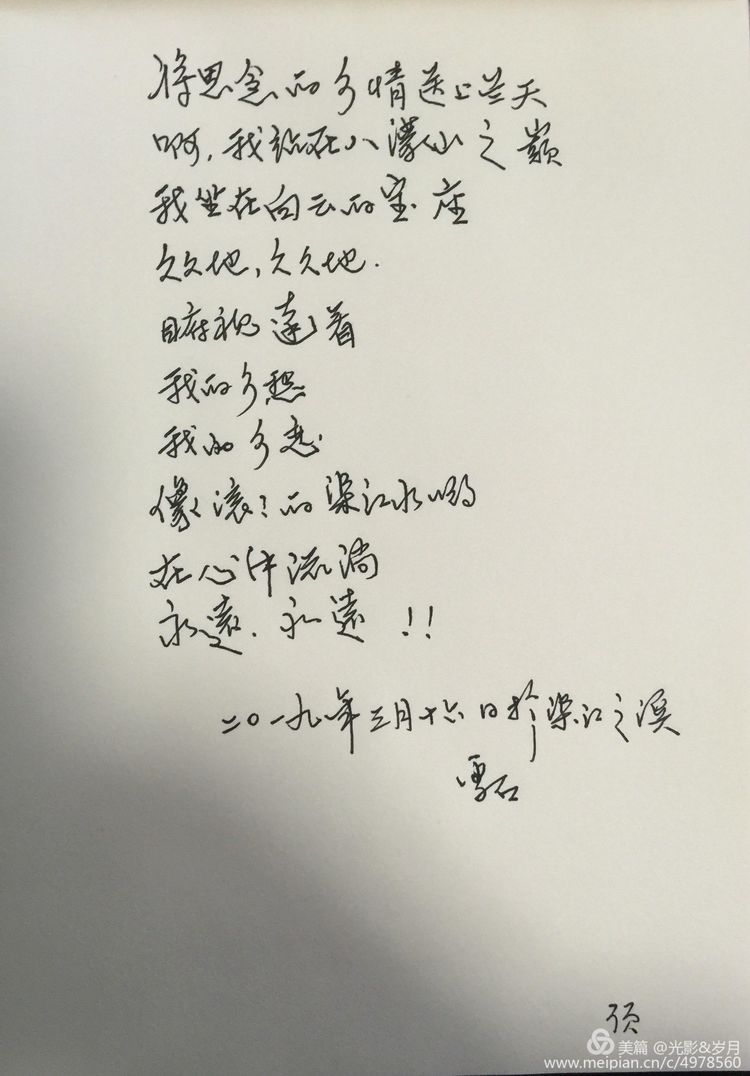 将思念的乡情送上兰天
啊,我站在八濛山之巅
我坐在白云的宝座
久久地,久久地.
瞰视遠着
我的乡愁
我的乡恋
像滚滚的渠江水哟
在心中流淌
永遠.永遠!!
二〇一九年三月十六日於渠江之溪
雪石
美篇 @光影&岁月
www.meipian.cn/c/4978560